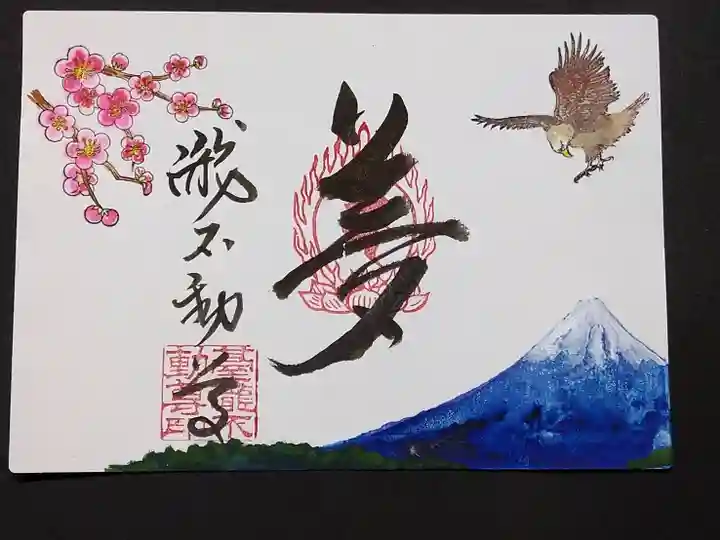 夢
滝不動尊